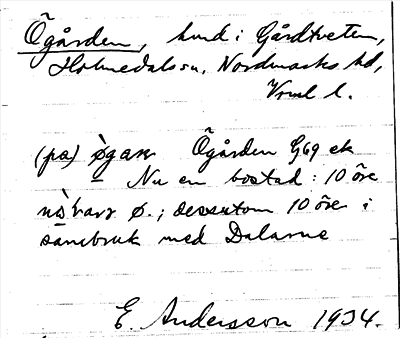 Ögården, hmd i Gårdtveten,
Holmedals sn, Nordmarks hd,
Vrml l.
(pa) ö̀gaɴ Ögården G69 ek
Nu en bostad: 10 öre
ö.; dessutom 10 öre i
sambruk med Dalarne
E. Andersson 1934.